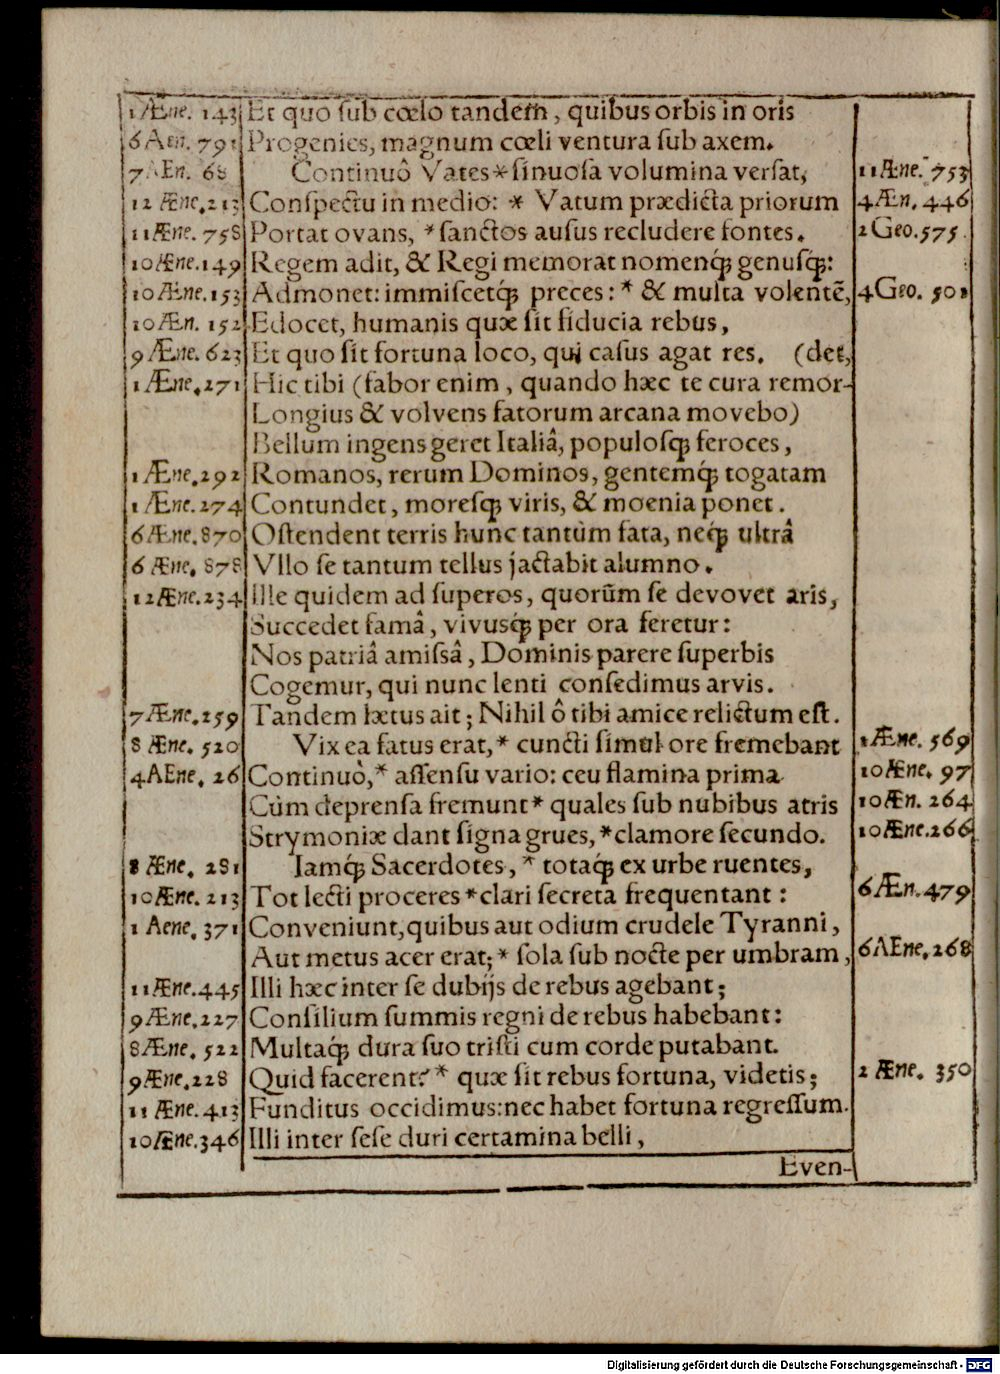 1 Æne. 143 Et quo ſub cœlo tandem̄, quibus orbis in oris
6 Aen. 791 Progenies, magnum cœli ventura ſub axem.
7 AEn. 68 Continuô Vates * ſinuoſa volumina verſat, 11 Æne. 753
12 Æne. 213 Conſpectu in medio: * Vatum prædicta priorum 4 Æn. 446
11 Æne. 758 Portat ovans, * ſanctos auſus recludere fontes. 2 Geo. 575.
10 Æne. 149 Regem adit, & Regi memorat nomenq́; genuſq́;:
10 Æne. 153 Admonet: immiſcetq́; preces: * & multa volentē, 4 Geo. 501
10 Æn. 152 Edocet, humanis quæ ſit fiducia rebus,
9 Æne. 623 Et quo ſit fortuna loco, qui caſus agat res. (det,
1 Æne. 271 Hic tibi (fabor enim, quando hæc te cura remor-
Longius & volvens fatorum arcana movebo)
Bellum ingens geret Italiâ, populoſq́; feroces,
1 Æne. 292 Romanos, rerum Dominos, gentemq́; togatam
1 Æne. 274 Contundet, moreſq́; viris, & moenia ponet.
6 Æne. 870 Oſtendent terris hunc tantùm fata, neq́; ultrâ
6 Æne. 878 Vllo ſe tantum tellus jactabit alumno.
12 Æne. 234 Ille quidem ad ſuperos, quorūm ſe devovet aris,
Succedet famâ, vivusq́; per ora feretur:
Nos patriâ amiſsâ, Dominis parere ſuperbis
Cogemur, qui nunc lenti conſedimus arvis.
7 Æne. 259 Tandem lætus ait; Nihil ô tibi amice relictum eſt.
8 Æne. 520 Vix ea fatus erat, * cuncti ſimul ore fremebant 1 Æne. 569
4 AEne. 26 Continuò, * aſſenſu vario: ceu flamina prima 10 Æne. 97
Cùm deprenſa fremunt * quales ſub nubibus atris 10 Æn. 264
Strymoniæ dant ſigna grues, * clamore ſecundo. 10 Æne. 266
8 Æne. 281 Iamq́; Sacerdotes, * totaq́; ex urbe ruentes,
10 Æne. 213 Tot lecti proceres * clari ſecreta frequentant: 6 Æn. 479
1 Aene. 371 Conveniunt, quibus aut odium crudele Tyranni,
Aut metus acer erat; * ſola ſub nocte per umbram, 6 AEne. 268
11 Æne. 445 Illi hæc inter ſe dubijs de rebus agebant;
9 Æne. 227 Conſilium ſummis regni de rebus habebant:
8 Æne. 522 Multaq́; dura ſuo triſti cum corde putabant.
9 Æne. 228 Quid facerent? * quæ ſit rebus fortuna, videtis; 2 Æne. 350
11 Æne. 413 Funditus occidimus: nec habet fortuna regreſſum.
10 Æne. 346 Illi inter ſeſe duri certamina belli,
Even-
Digitalisierung gefördert durch die Deutsche Forschungsgemeinschaft - DFG